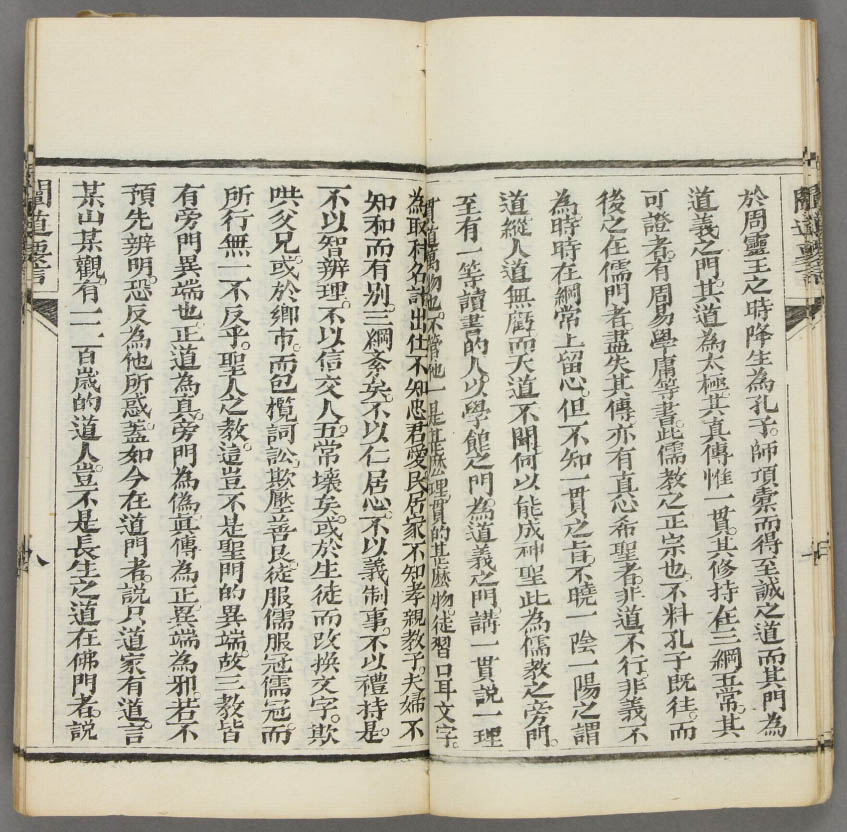 於周靈王之時降生為孔子。師項橐而得至誠之道而其門為
道義之門。其道為太極。其真傳惟一貫。其修持在三綱五常。其
可證者。有周易學庸等書。此儒教之正宗也。不料孔子既往。而
後之在儒門者。盡失其傳亦有真心希聖者。非道不行。非義不
為。時時在綱常上留心。但不知一貫之旨。不曉一陰一陽之謂
道。縱人道無虧。而天道不聞。何以能成神聖。此為儒教之旁門。
至有一等讀書的人。以學館之門。為道義之門。講一貫。說一理
貫道萬物也。不管他一是甚麼理。貫的甚麼物。徒習口耳文字。
為取材名計。出仕不知忠君愛民。居家不知孝親教子。夫婦不
知和而有別。三綱紊矣。不以仁居心。不以義制事。不以禮持是。
不以智辨理。不以信交人。五常壞矣。或於生徒而改換文字。欺
哄父兄。或於鄉市。而包欖詞訟。欺壓善良。徒服儒服冠儒冠。而
所行無一不反乎聖人之教。這豈不是聖門的異端。故三教皆
有旁門異端也。正道為真。旁門為偽。真傳為正。異端為邪。若不
預先辨明。恐反為他所惑。蓋如今在道門者。說只道家有道。言
某山某觀。有一二百歲的道人。豈不是長生之道。在佛門者。說
闡道要言
八